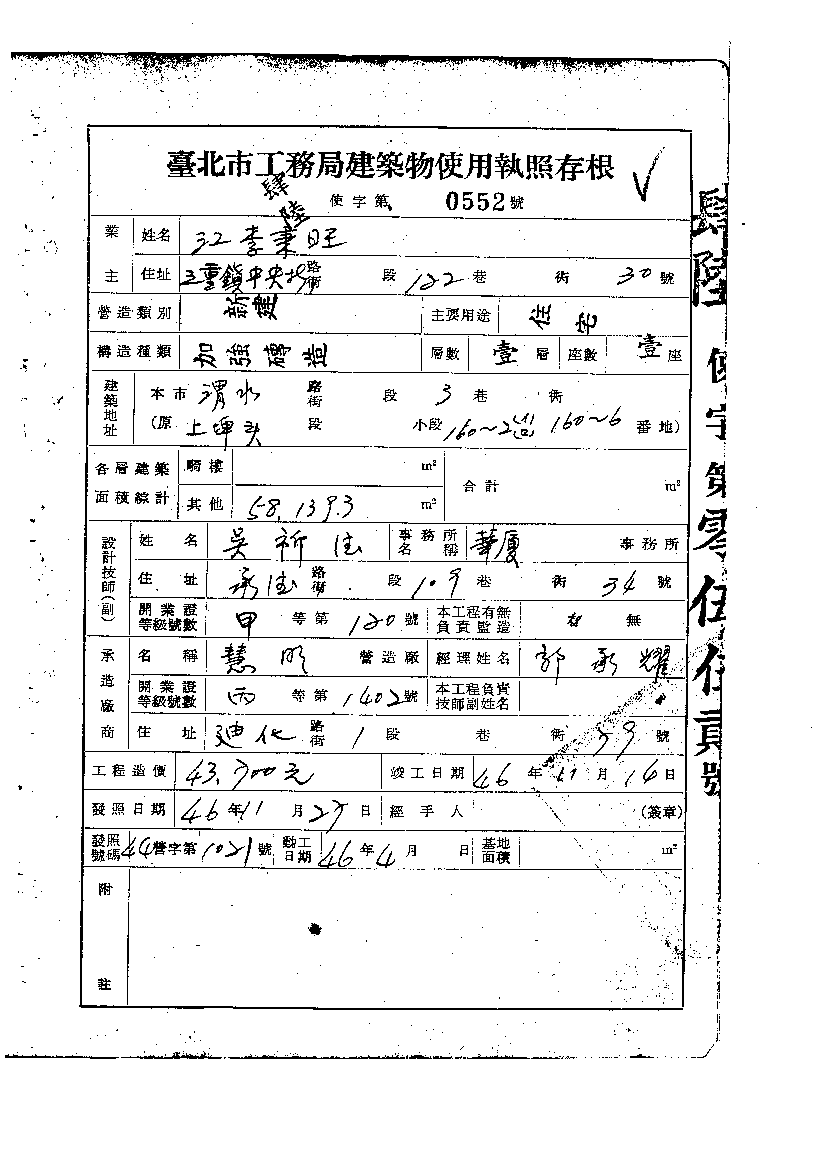 臺北市工務局建築物使用執照存根
肆陸使字第 0552號
業主 姓名 江李秉旺
住址 三重鎮中央 路街 段 122 巷 衖 30 號
營造類別 新建 主要用途 住宅
構造種類 加強磚造 層數 壹 層 座數 壹 座
建築地址 本市 渭水 路街 段 3 巷 衖
(原 上埤头 段 小段 160~2 160~6 番地)
各層建築面積綜計 騎樓 m² 合計 m²
其他 58.1393 m²
設計技師(副) 姓名 吳 事務所名稱 華廈 事務所
住址 承德 路街 段 109 巷 衖 34 號
開業證等級號數 甲 等第 120 號 本工程有無負責監造 有 無
承造廠商 名稱 慧明 營造廠 經理姓名 郭承耀
開業證等級號數 丙 等第 1402 號 本工程負責技師副姓名
住址 廸化 路街 1 段 巷 衖 號
工程造價 43,700元 竣工日期 46 年 11 月 14 日
發照日期 46 年 11 月 27 日 經手人 (簽章)
發照號碼 44 營字第 1021 號 動工日期 46 年 4 月 日 基地面積 m²
附註
肆陸使字第零伍伍貳號